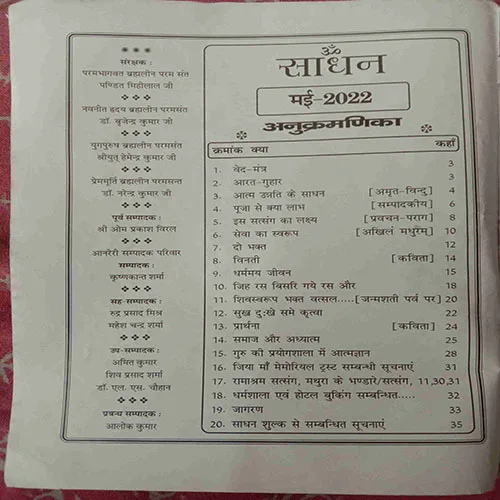 संरक्षक :
परमभागवत ब्रह्मलीन परम संत
पण्डित मिहीलाल जी
नवनीत हृदय ब्रह्मलीन परमसंत
डॉ. बृजेन्द्र कुमार जी
युगपुरुष ब्रह्मलीन परमसंत
श्रीयुत् हेमेन्द्र कुमार जी
प्रेममूर्ति ब्रह्मलीन परमसन्त
डॉ. नरेन्द्र कुमार जी
पूर्व सम्पादक :
श्री ओम प्रकाश विरल
आनरेरी सम्पादक परिवार
सम्पादक :
कृष्णकान्त शर्मा
सह-सम्पादक :
रुद्र प्रसाद मिश्र
महेश चन्द्र शर्मा
उप-सम्पादक :
अमित कुमार
शिव प्रसाद शर्मा
डॉ. एल. एस. चौहान
प्रबन्ध सम्पादक :
आलोक कुमार
ॐ
साधन
मई-2022
अनुक्रमणिका
क्रमांक क्या कहाँ
1. वेद-मंत्र 3
2. आरत-गुहार 3
3. आत्म उन्नति के साधन [अमृत-विन्दु] 4
4. पूजा से क्या लाभ [सम्पादकीय] 6
5. इस सत्संग का लक्ष्य [प्रवचन-पराग] 8
6. सेवा का स्वरूप [अखिलं मधुरम्] 10
7. दो भक्त 12
8. विनती [कविता] 14
9. धर्ममय जीवन 15
10. जिह रस बिसरि गये रस और 18
11. शिवस्वरूप भक्त वत्सल.....[जन्मशती पर्व पर] 20
12. सुख दुःखे समे कृत्वा 22
13. प्रार्थना [कविता] 24
14. समाज और अध्यात्म 25
15. गुरु की प्रयोगशाला में आत्मज्ञान 28
16. जिया माँ मेमोरियल ट्रस्ट सम्बन्धी सूचनाएं 31
17. रामाश्रम सत्संग, मथुरा के भण्डारे/सत्संग, 11,30,31
18. धर्मशाला एवं होटल बुकिंग सम्बन्धित..... 32
19. जागरण 33
20. साधन शुल्क से सम्बन्धित सूचनाएं 35